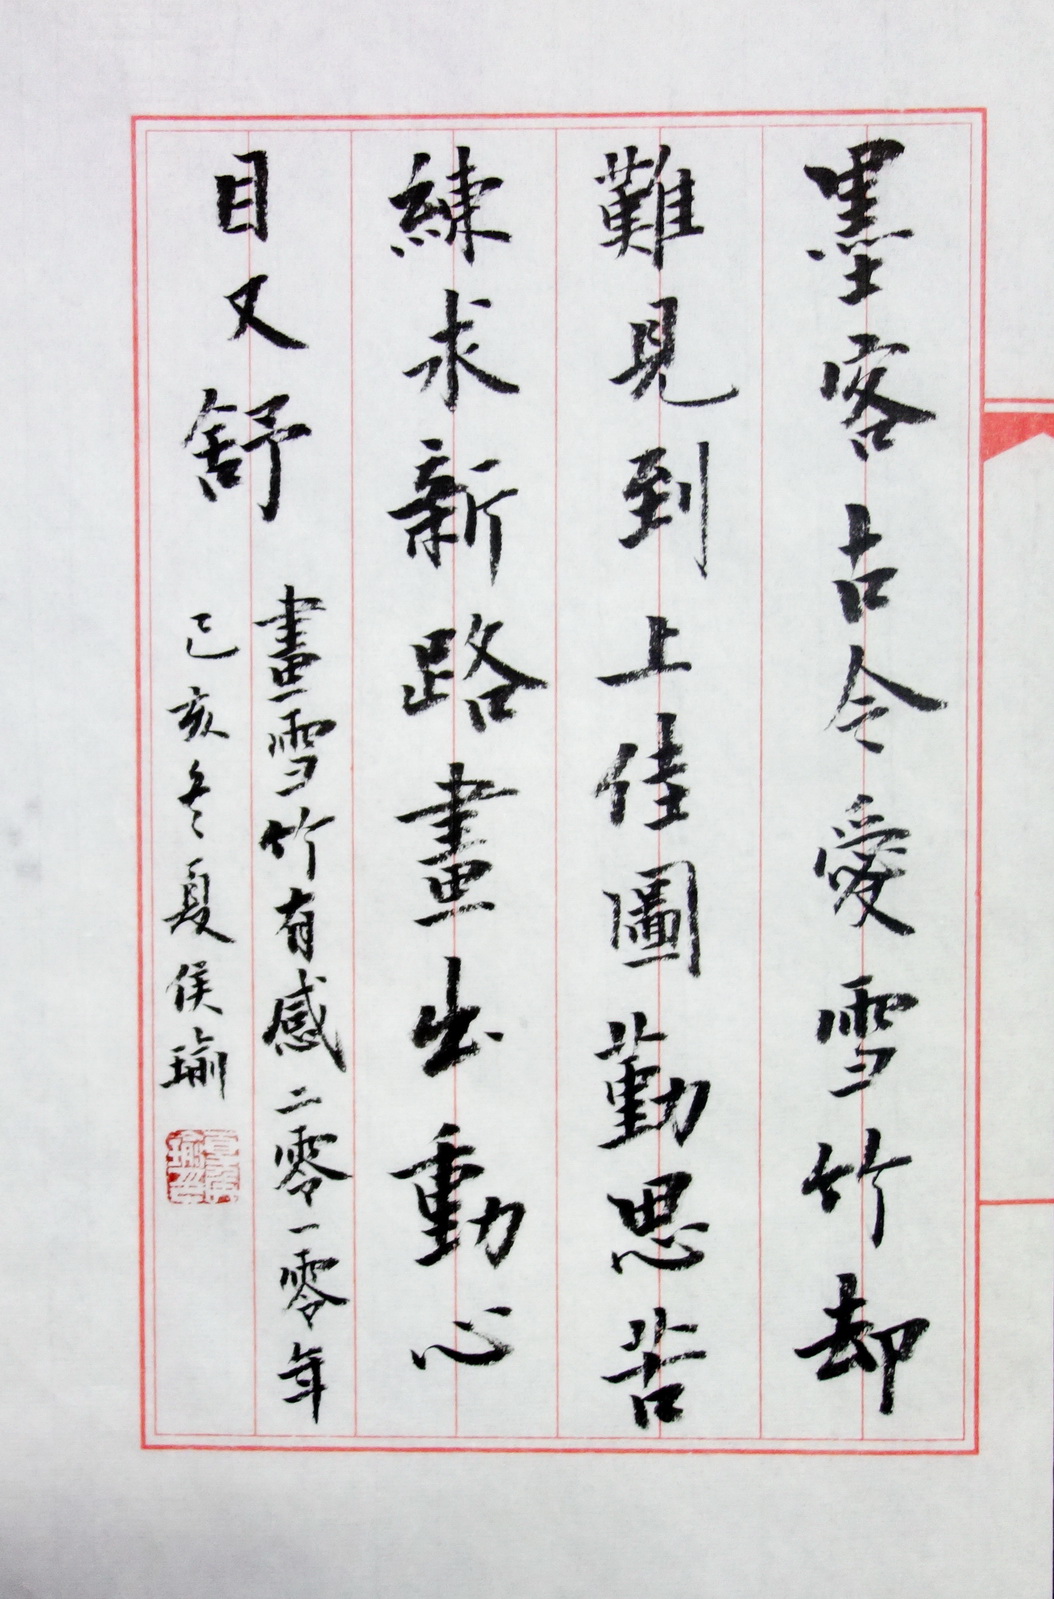 墨客古今愛雪竹却
難見到上佳圖勤思苦
練求新路畫出動心
目又舒
畫雪竹有感二零一零年
己亥冬夏侯瑜